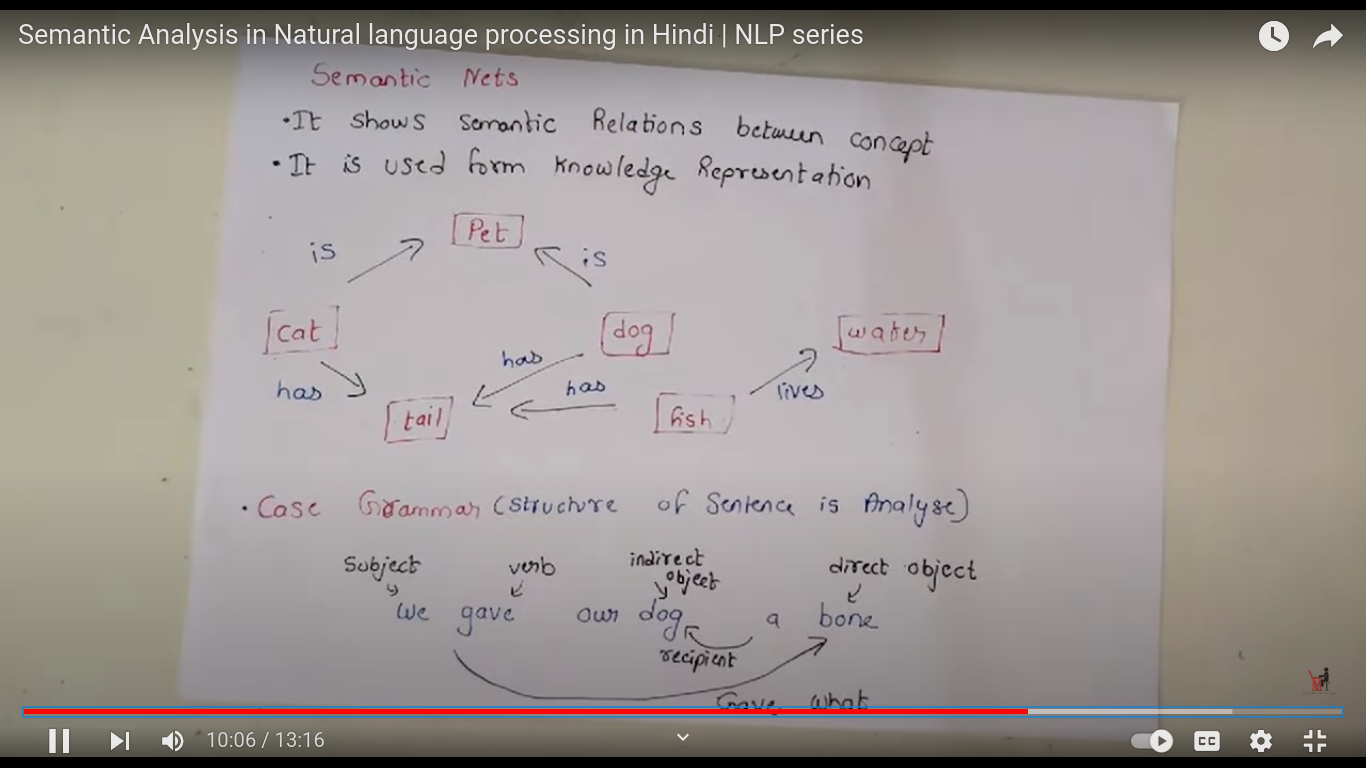 Semantic Analysis in Natural language processing in Hindi | NLP series
Semantic Nets
•It shows semantic Relations between concept
•It is used form Knowledge Representation
Pet
is
is
cat
dog
water
has
has
has
lives
tail
fish
•Case Grammar (structure of Sentence is Analyse)
Subject
verb
indirect
object
direct object
we gave our dog a bone
recipient
Gave what
10:06 / 13:16
CC